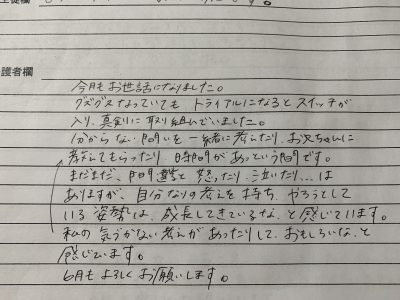 護者欄
今月もお世話になりました。
グズグズなっていても トライアルになるとスイッチが
入り、真剣に取り組んでいました。
分からない問いを一緒に考えたり、お兄ちゃんに
教えてもらったり 時間があっという間です。
まだまだ、間違えと怒ったり、泣いたり...は
ありますが、自分なりの考えを持ち、やろうとして
いる姿勢は、成長してきているな、と感じています。
私の気づかない考えがあったりして、おもしろいな、と
感じています。
6月もよろしくお願いします。